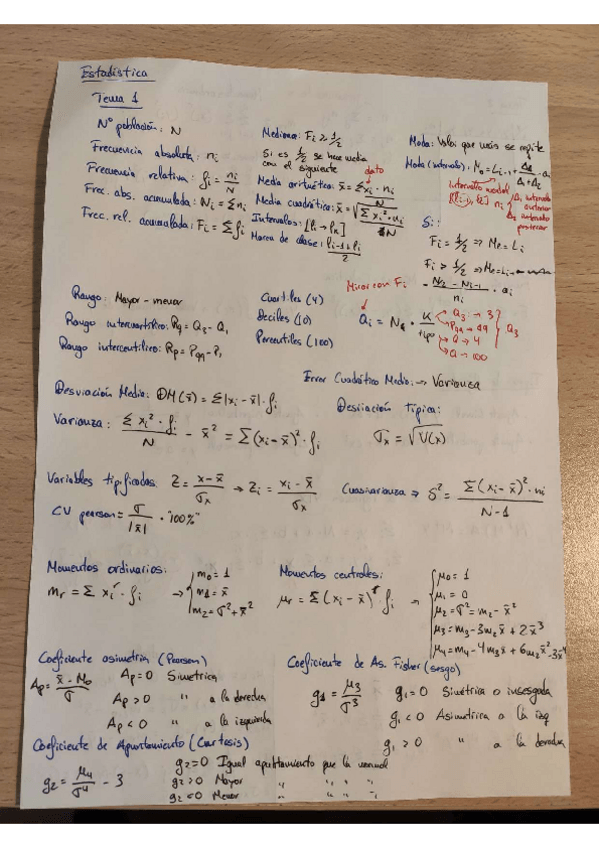 Estadística
Tema 1
Nº población: N
Frecuencia absoluta: ni
Frecuencia relativa: fi = ni/N
Frec. abs. acumulada: Ni = Σ ni
Frec. rel. acumulada: Fi = Σ fi
Mediana: Fi ≥ 1/2
Si es 1/2 se hace media
con el siguiente
dato
Media aritmética: x̄ = Σ xi · ni / N
Media cuadrática: x̄ = √(Σ xi² · ni / N)
Intervalos: [li → lk]
Marca de clase: (li-1 + li)/2
Moda: Valor que más se repite
Moda (intervalo): Mo = Li-1 + Δi/(Δi + Δi) · ai
intervalo modal
[li-1, li] ni
Δi intervalo
anterior
Δi intervalo
posterior
Si:
Fi = 1/2 => Me = Li
Fi > 1/2 => Me = Li-1
N/2 - Ni-1 / ni · ai
Rango: Mayor - menor
Rango intercuartílico: RQ = Q3 - Q1
Rango intercentílico: Rp = P99 - P1
Cuartiles (4)
Deciles (10)
Percentiles (100)
Mirar con Fi
Qi = N · K/tipo
Q3 → 3
P99 → 99
Q → 4
Q → 100
Q3
Error Cuadrático Medio: → Varianza
Desviación Media: DM(x̄) = Σ |xi - x̄| · fi
Varianza: Σ xi² · fi / N - x̄² = Σ (xi - x̄)² · fi
Desviación Típica:
σx = √V(x)
Variables tipificadas: Z = (x - x̄)/σx → Zi = (xi - x̄)/σx
Cuasivarianza → S² = Σ (xi - x̄)² · ni / (N - 1)
CV pearson = σ/|x̄| · "100%"
Momentos ordinarios:
mr = Σ xi^r · fi →
m0 = 1
m1 = x̄
m2 = σ² + x̄²
Momentos centrales:
μr = Σ (xi - x̄)^r · fi →
μ0 = 1
μ1 = 0
μ2 = σ² = m2 - x̄²
μ3 = m3 - 3m2x̄ + 2x̄³
μ4 = m4 - 4m3x̄ + 6m2x̄² - 3x̄⁴
Coeficiente asimetría (Pearson)
Ap = (x̄ - Mo)/σ
Ap = 0 Simétrica
Ap > 0 " a la derecha
Ap < 0 " a la izquierda
Coeficiente de As. Fisher (sesgo)
g1 = μ3/σ³
g1 = 0 Simétrica o insesgada
g1 < 0 Asimétrica a la izq
g1 > 0 " a la derecha
Coeficiente de Apuntamiento (Curtosis)
g2 = μ4/σ⁴ - 3
g2 = 0 Igual apuntamiento que la normal
g2 > 0 Mayor " " " "
g2 < 0 Menor " " " "